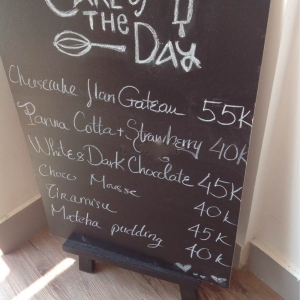 Cake of
the Day
Cheesecake flan Gateau 55K
Panna Cotta + Strawberry 40K
White & Dark Chocolate 45K
Choco Mousse 40K
Tiramisu 45K
Matcha pudding 40K